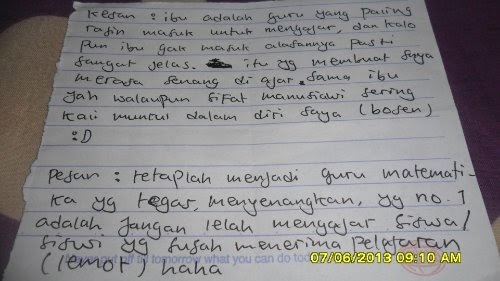 Kesan : ibu adalah guru yang paling
rajin masuk untuk mengajar, dan kalo
pun ibu gak masuk alasannya pasti
sangat jelas. itu yg membuat saya
merasa senang di ajar sama ibu
yah walaupun sifat manusiawi sering
kali muncul dalam diri saya (bosen)
:D
Pesan : tetaplah menjadi guru matemati-
ka yg tegar, menyenangkan, yg no. 1
adalah jangan lelah mengajar siswa/
siswi yg susah menerima pelajaran
(lemot) haha
put off till tomorrow what you can do too
07/06/2013 09:10 AM